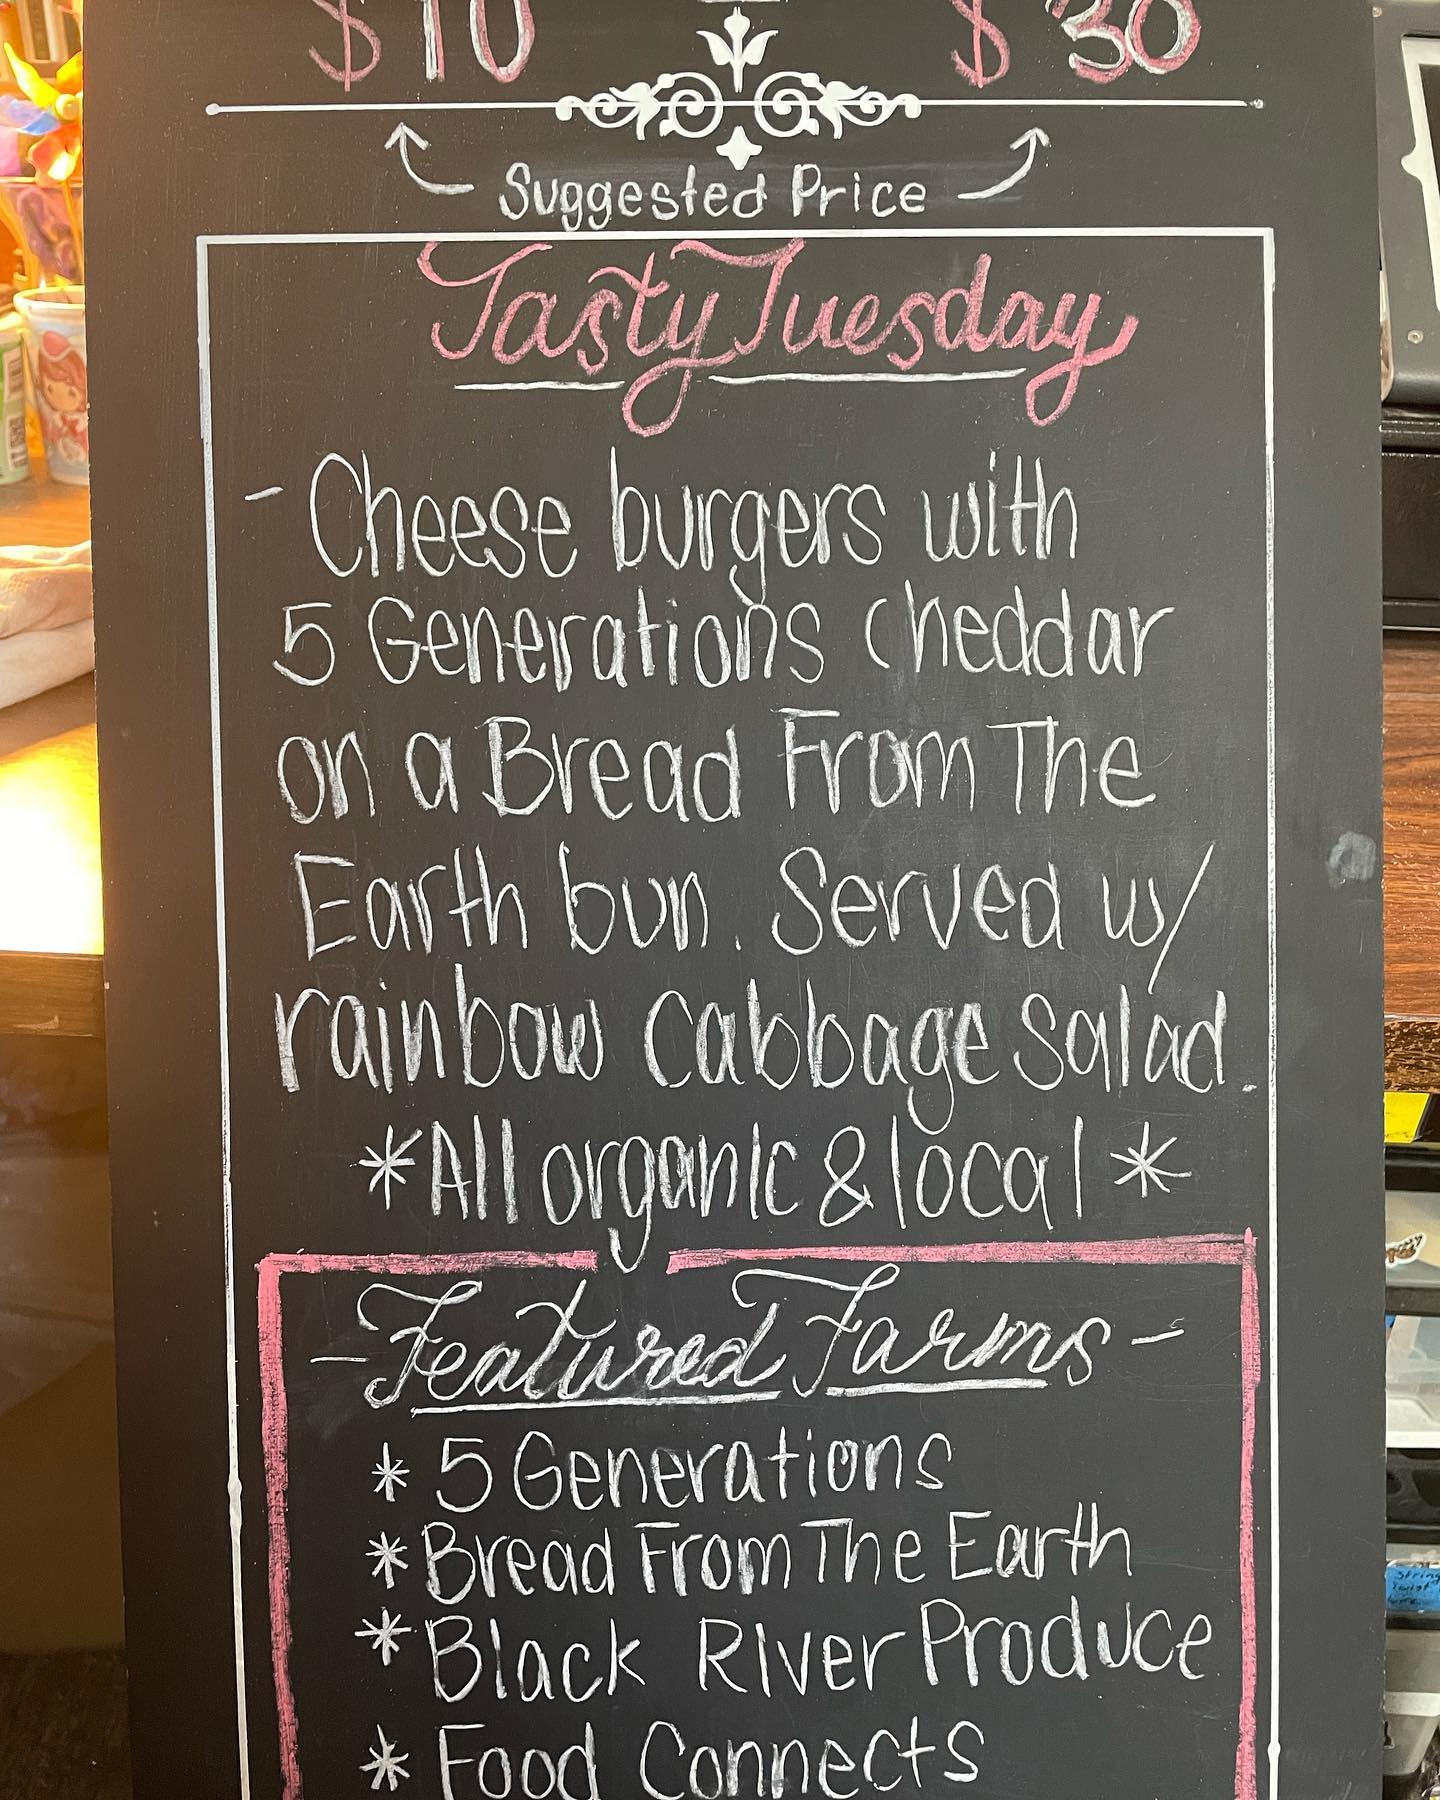 $10 $30
Suggested Price
Tasty Tuesday
- Cheese burgers with
5 Generations cheddar
on a Bread From The
Earth bun. Served w/
rainbow cabbage salad.
*All organic & local*
- Featured Farms -
* 5 Generations
* Bread From The Earth
* Black River Produce
* Food Connects